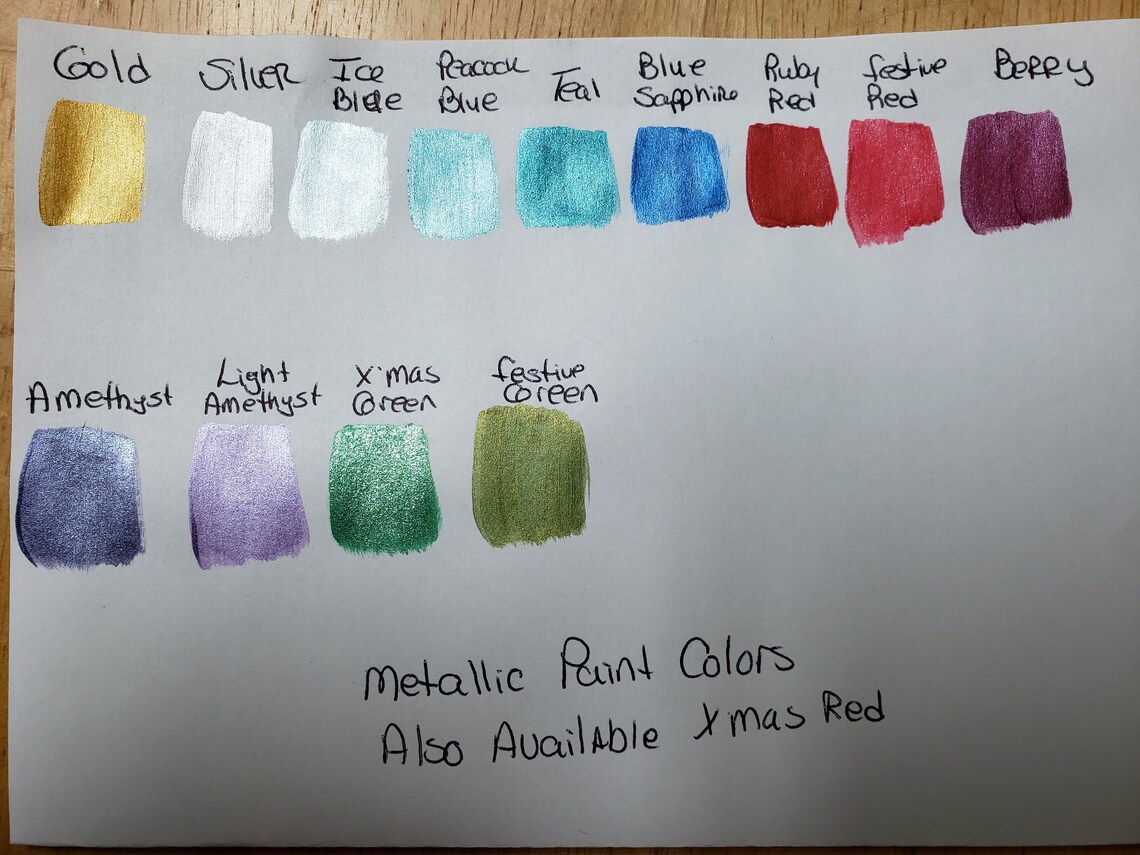 Gold
Silver
Ice
Blue
Peacock
Blue
Teal
Blue
Sapphire
Ruby
Red
festive
Red
Berry
Amethyst
Light
Amethyst
X'mas
Green
festive
Green
Metallic Paint Colors
Also Available Xmas Red